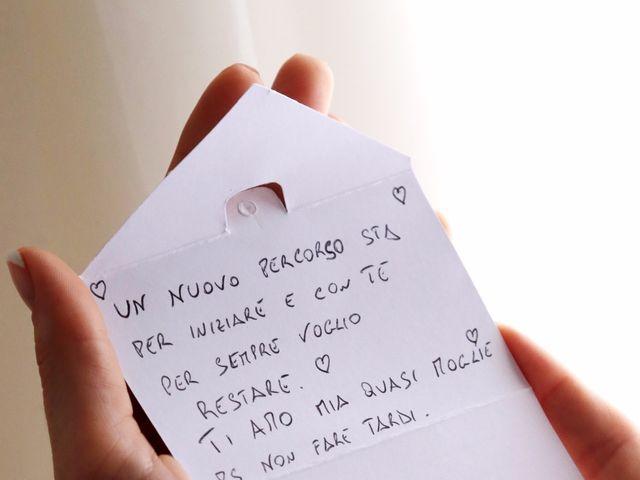 UN NUOVO PERCORSO STA
PER INIZIARE E CON TE
PER SEMPRE VOGLIO
RESTARE.
TI AMO MIA QUASI MOGLIE
PS NON FARE TARDI.